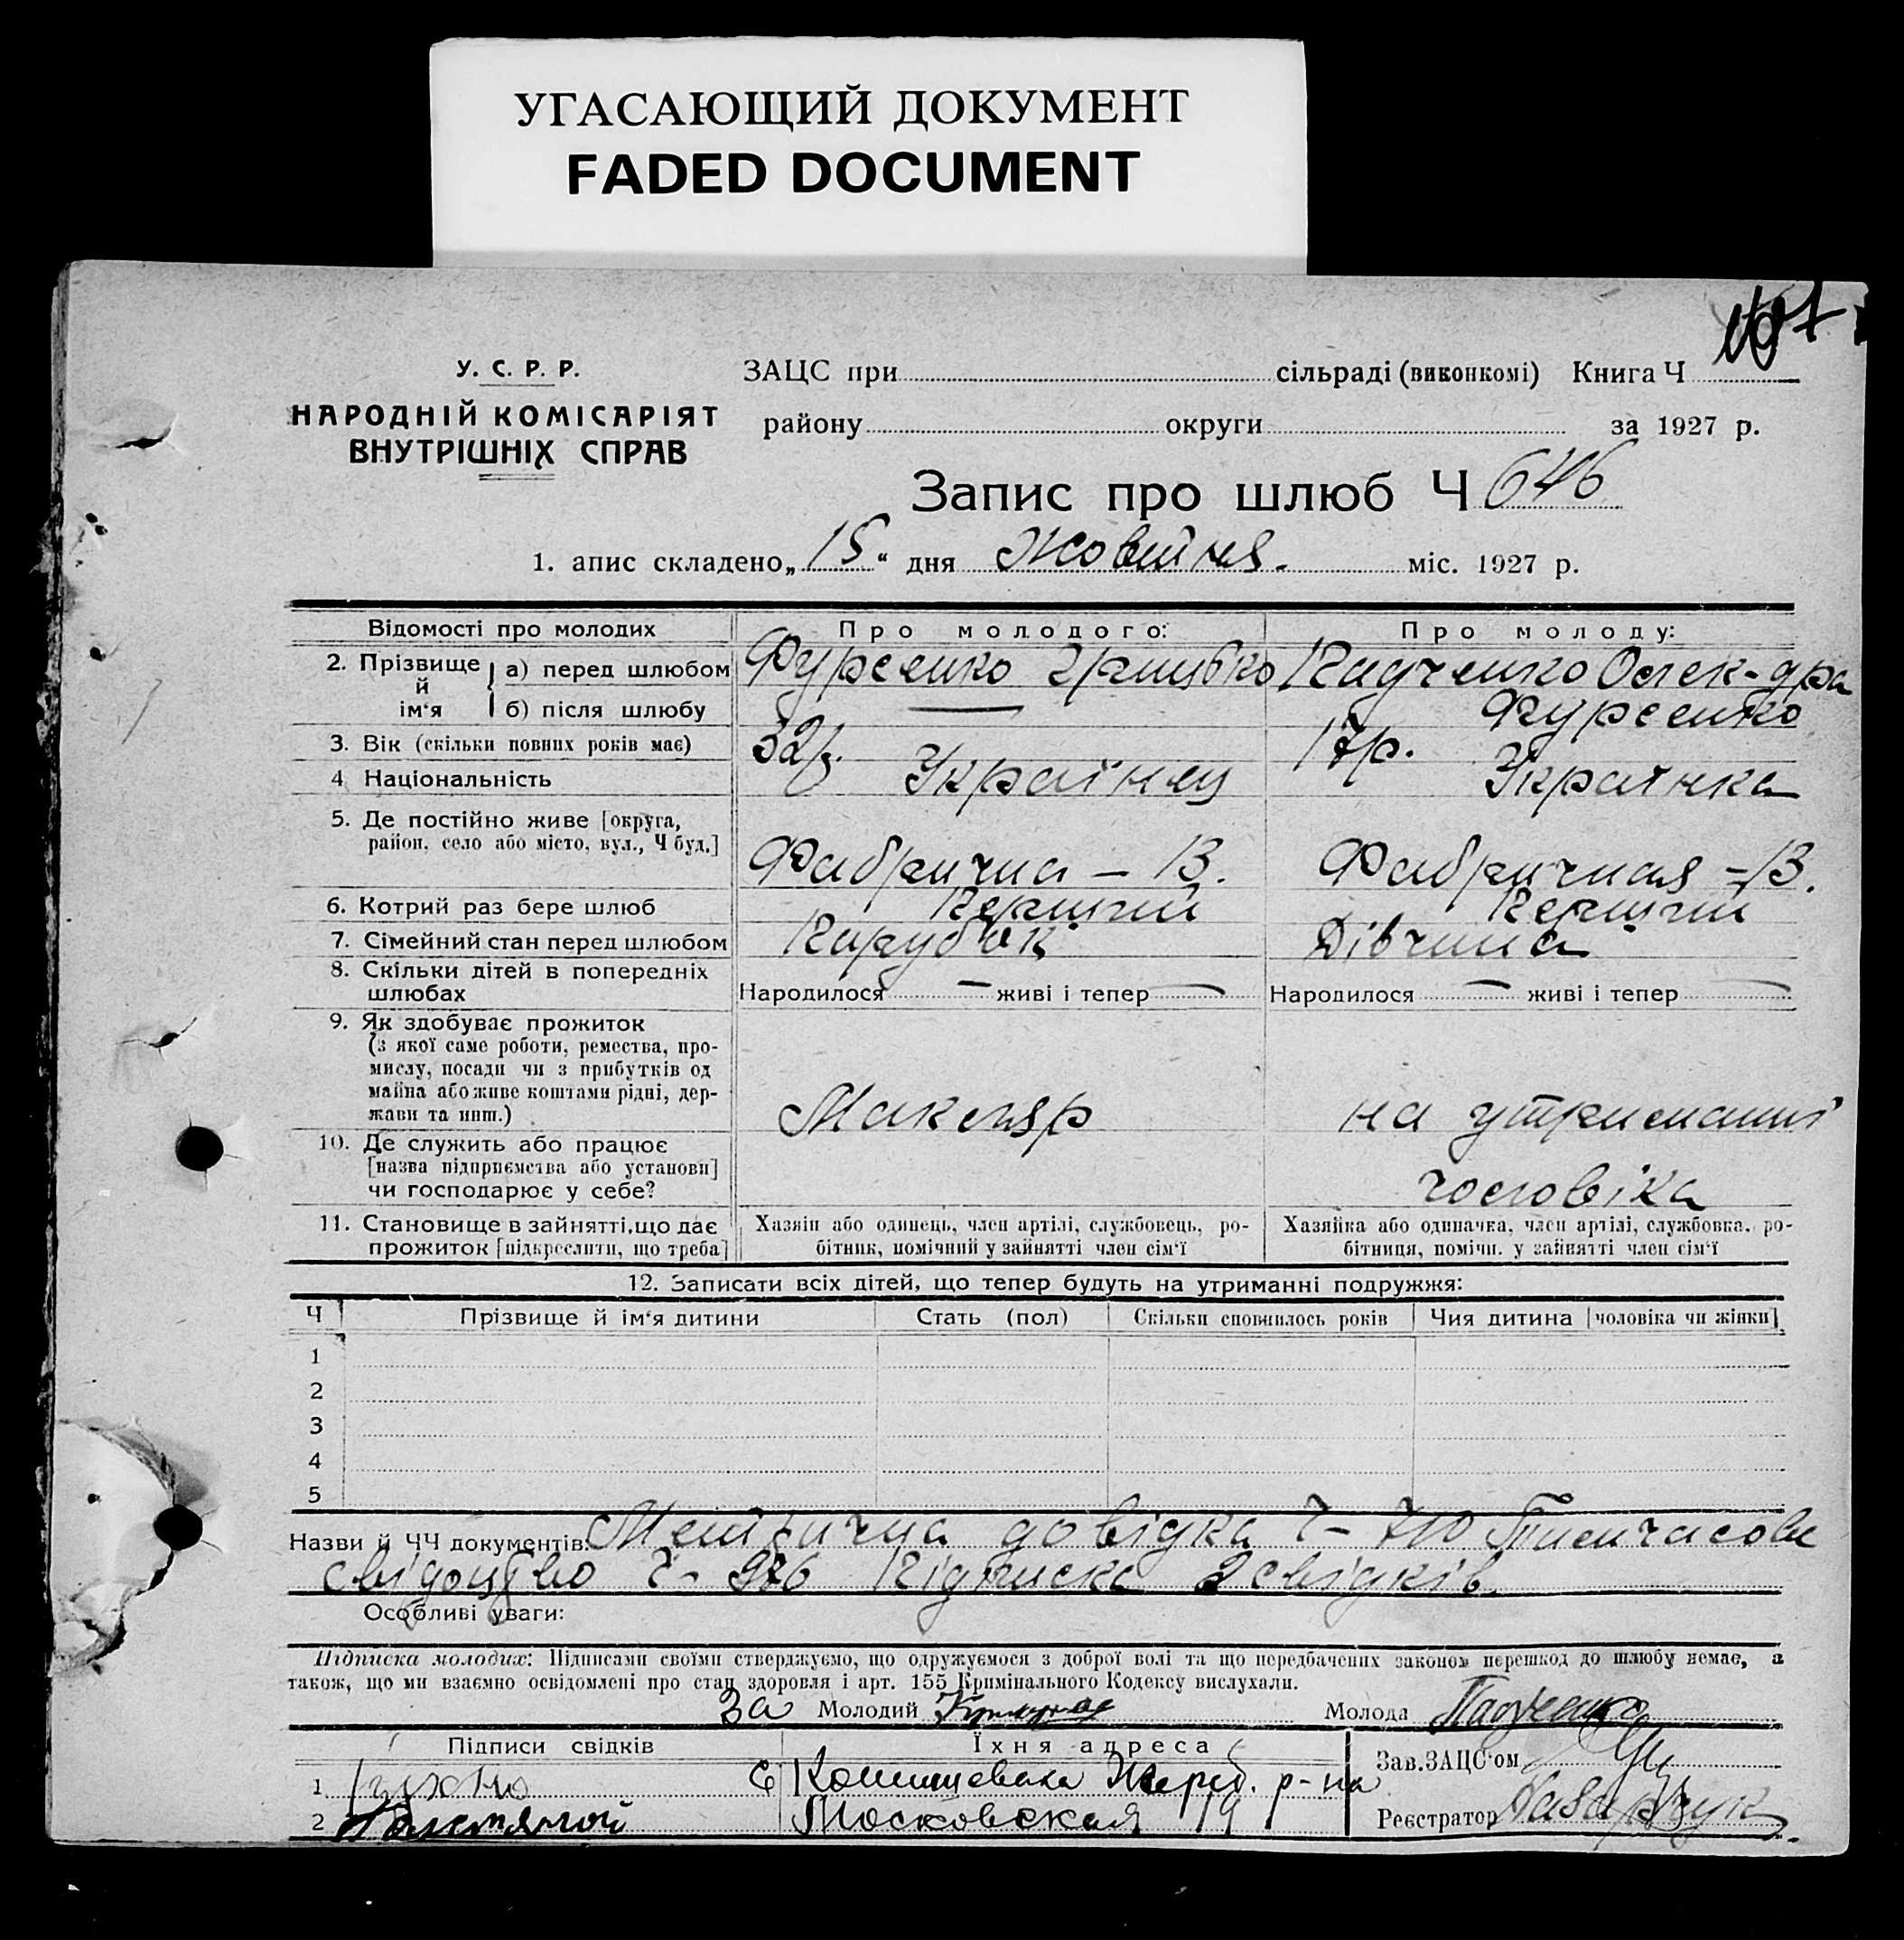 УГАСАЮЩИЙ ДОКУМЕНТ
FADED DOCUMENT
У. С. Р. Р.
НАРОДНІЙ КОМІСАРІЯТ
ВНУТРІШНІХ СПРАВ
ЗАЦС при сільраді (виконкомі) Книга Ч
району округи за 1927 р.
Запис про шлюб Ч 646
1. апис складено „15“ дня Жовтня. міс. 1927 р.
Відомості про молодих Про молодого: Про молоду:
2. Прізвище й ім'я а) перед шлюбом Фурсенко Грицько Падченко Олек-дра
б) після шлюбу — Фурсенко
3. Вік (скільки повних років має) 32р. 17р.
4 Національність Українец Українка
5. Де постійно живе [округа,
район, село або місто, вул., Ч буд.] Фабрична – 13. Фабричная – 13.
6. Котрий раз бере шлюб Перший Перший
7. Сімейний стан перед шлюбом Парубок Дівчина
8. Скільки дітей в попередніх
шлюбах Народилося — живі і тепер — Народилося — живі і тепер —
9. Як здобуває прожиток
(з якої саме роботи, ремества, про-
мислу, посади чи з прибутків од
майна або живе коштами рідні, дер-
жави та инш.) Макляр на утриманні
10. Де служить або працює
[назва підприємства або установи]
чи господарює у себе? чоловіка
11. Становище в зайнятті, що дає
прожиток [підкреслити, що треба]
Хазяїн або одинець, член артілі, службовець, ро-
бітник, помічний у зайнятті член сім'ї
Хазяйка або одиначка, член артілі, службовка, ро-
бітниця, помічн. у зайнятті член сім'ї
12. Записати всіх дітей, що тепер будуть на утриманні подружжя:
Ч Прізвище й ім'я дитини Стать (пол) Скільки сповнилось років Чия дитина [чоловіка чи жінки]
1
2
3
4
5
Назви й ЧЧ документів: Метрична довідка Ч – 710 Тимчасове
свідоцтво Ч – 986 Підписка 2 свідків.
Особливі уваги:
Підписка молодих: Підписами своїми стверджуємо, що одружуємося з доброї волі та що передбачених законом перешкод до шлюбу немає, а
також, що ми взаємно освідомлені про стан здоровля і арт. 155 Кримінального Кодексу вислухали.
За Молодий Молода Падченко
Підписи свідків Їхня адреса Зав.ЗАЦС'ом
1 р-на
2 Московская 19 Реєстратор